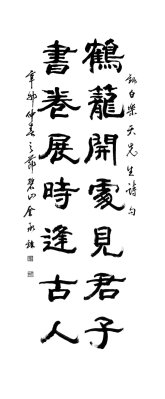 白樂天先生詩句
鶴籠開處見君子
書卷展時逢古人
仲春之節碧山金永